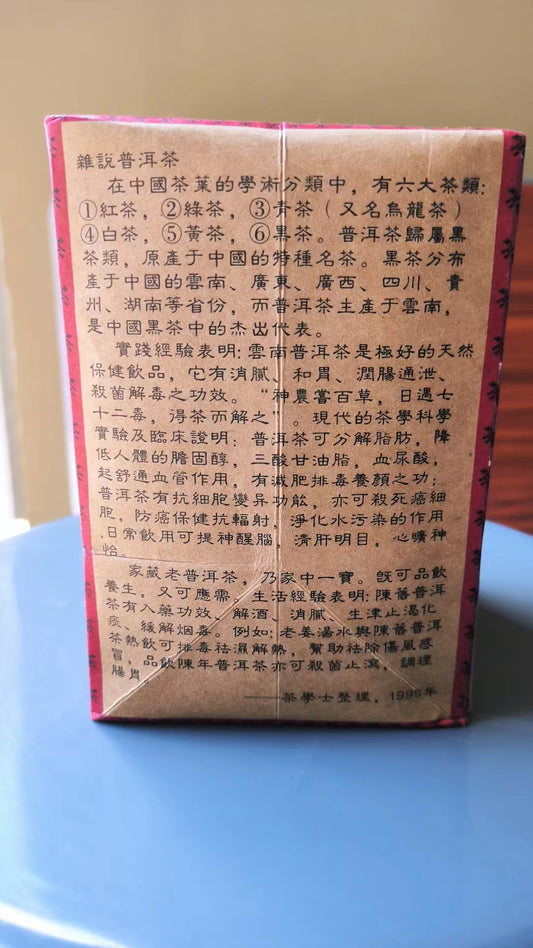 雜說普洱茶
在中國茶葉的學術分類中，有六大茶類：
①紅茶，②綠茶，③青茶（又名烏龍茶）
④白茶，⑤黃茶，⑥黑茶。普洱茶歸屬黑
茶類，原產于中國的特種名茶。黑茶分布
產于中國的雲南、廣東、廣西、四川、貴
州、湖南等省份，而普洱茶生產于雲南，
是中國黑茶中的杰出代表。
實踐經驗表明：雲南普洱茶是極好的天然
保健飲品，它有消膩、和胃、潤腸通泄、
殺菌解毒之功效。“神農嘗百草，日遇七
十二毒，得茶而解之”。現代的茶學科學
實驗及臨床證明：普洱茶可分解脂肪，降
低人體的膽固醇，三酸甘油脂，血尿酸，
起舒通血管作用，有減肥排毒養顏之功；
普洱茶有抗細胞變异功能，亦可殺死癌細
胞，防癌保健抗輻射，淨化水污染的作用
，日常飲用可提神醒腦，清肝明目，心曠神
怡。
家藏老普洱茶，乃家中一寶。既可品飲
養生，又可應需，生活經驗表明：陳舊普洱
茶有入藥功效、解酒、消膩、生津止渴化
痰、緩解烟毒。例如：老姜湯水與陳舊普洱
茶熱飲可排毒祛濕解熱，幫助祛除傷風感
冒，品飲陳年普洱茶亦可殺菌止瀉，調理
腸胃
——茶學士整理，1995年